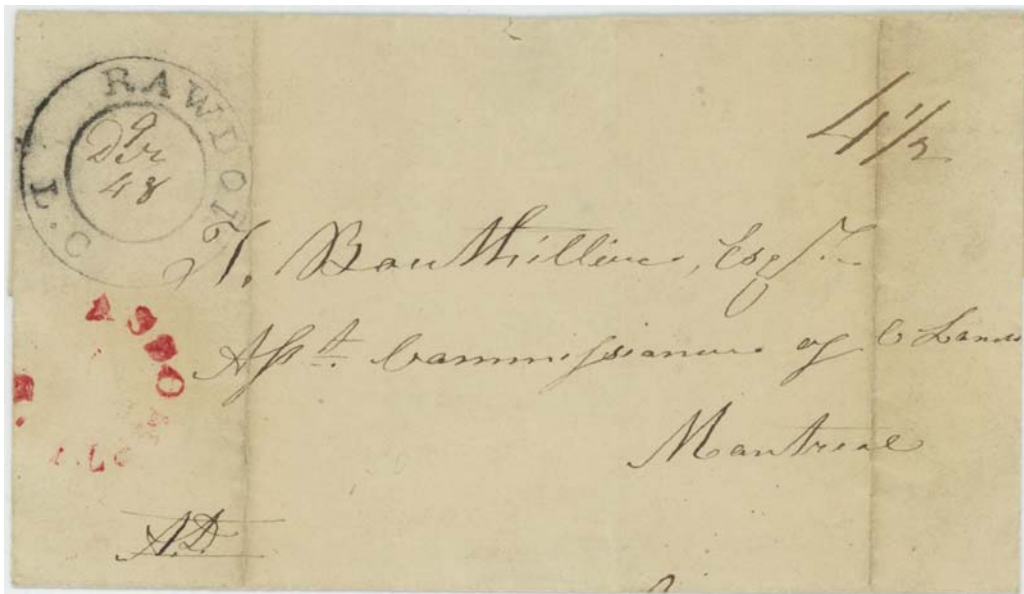 RAWDON L.C.
9
Dr
48
4 1/2
T. Bouthillier, Esqre
Asst. Commissioner of C Lands
Montreal
A.D.